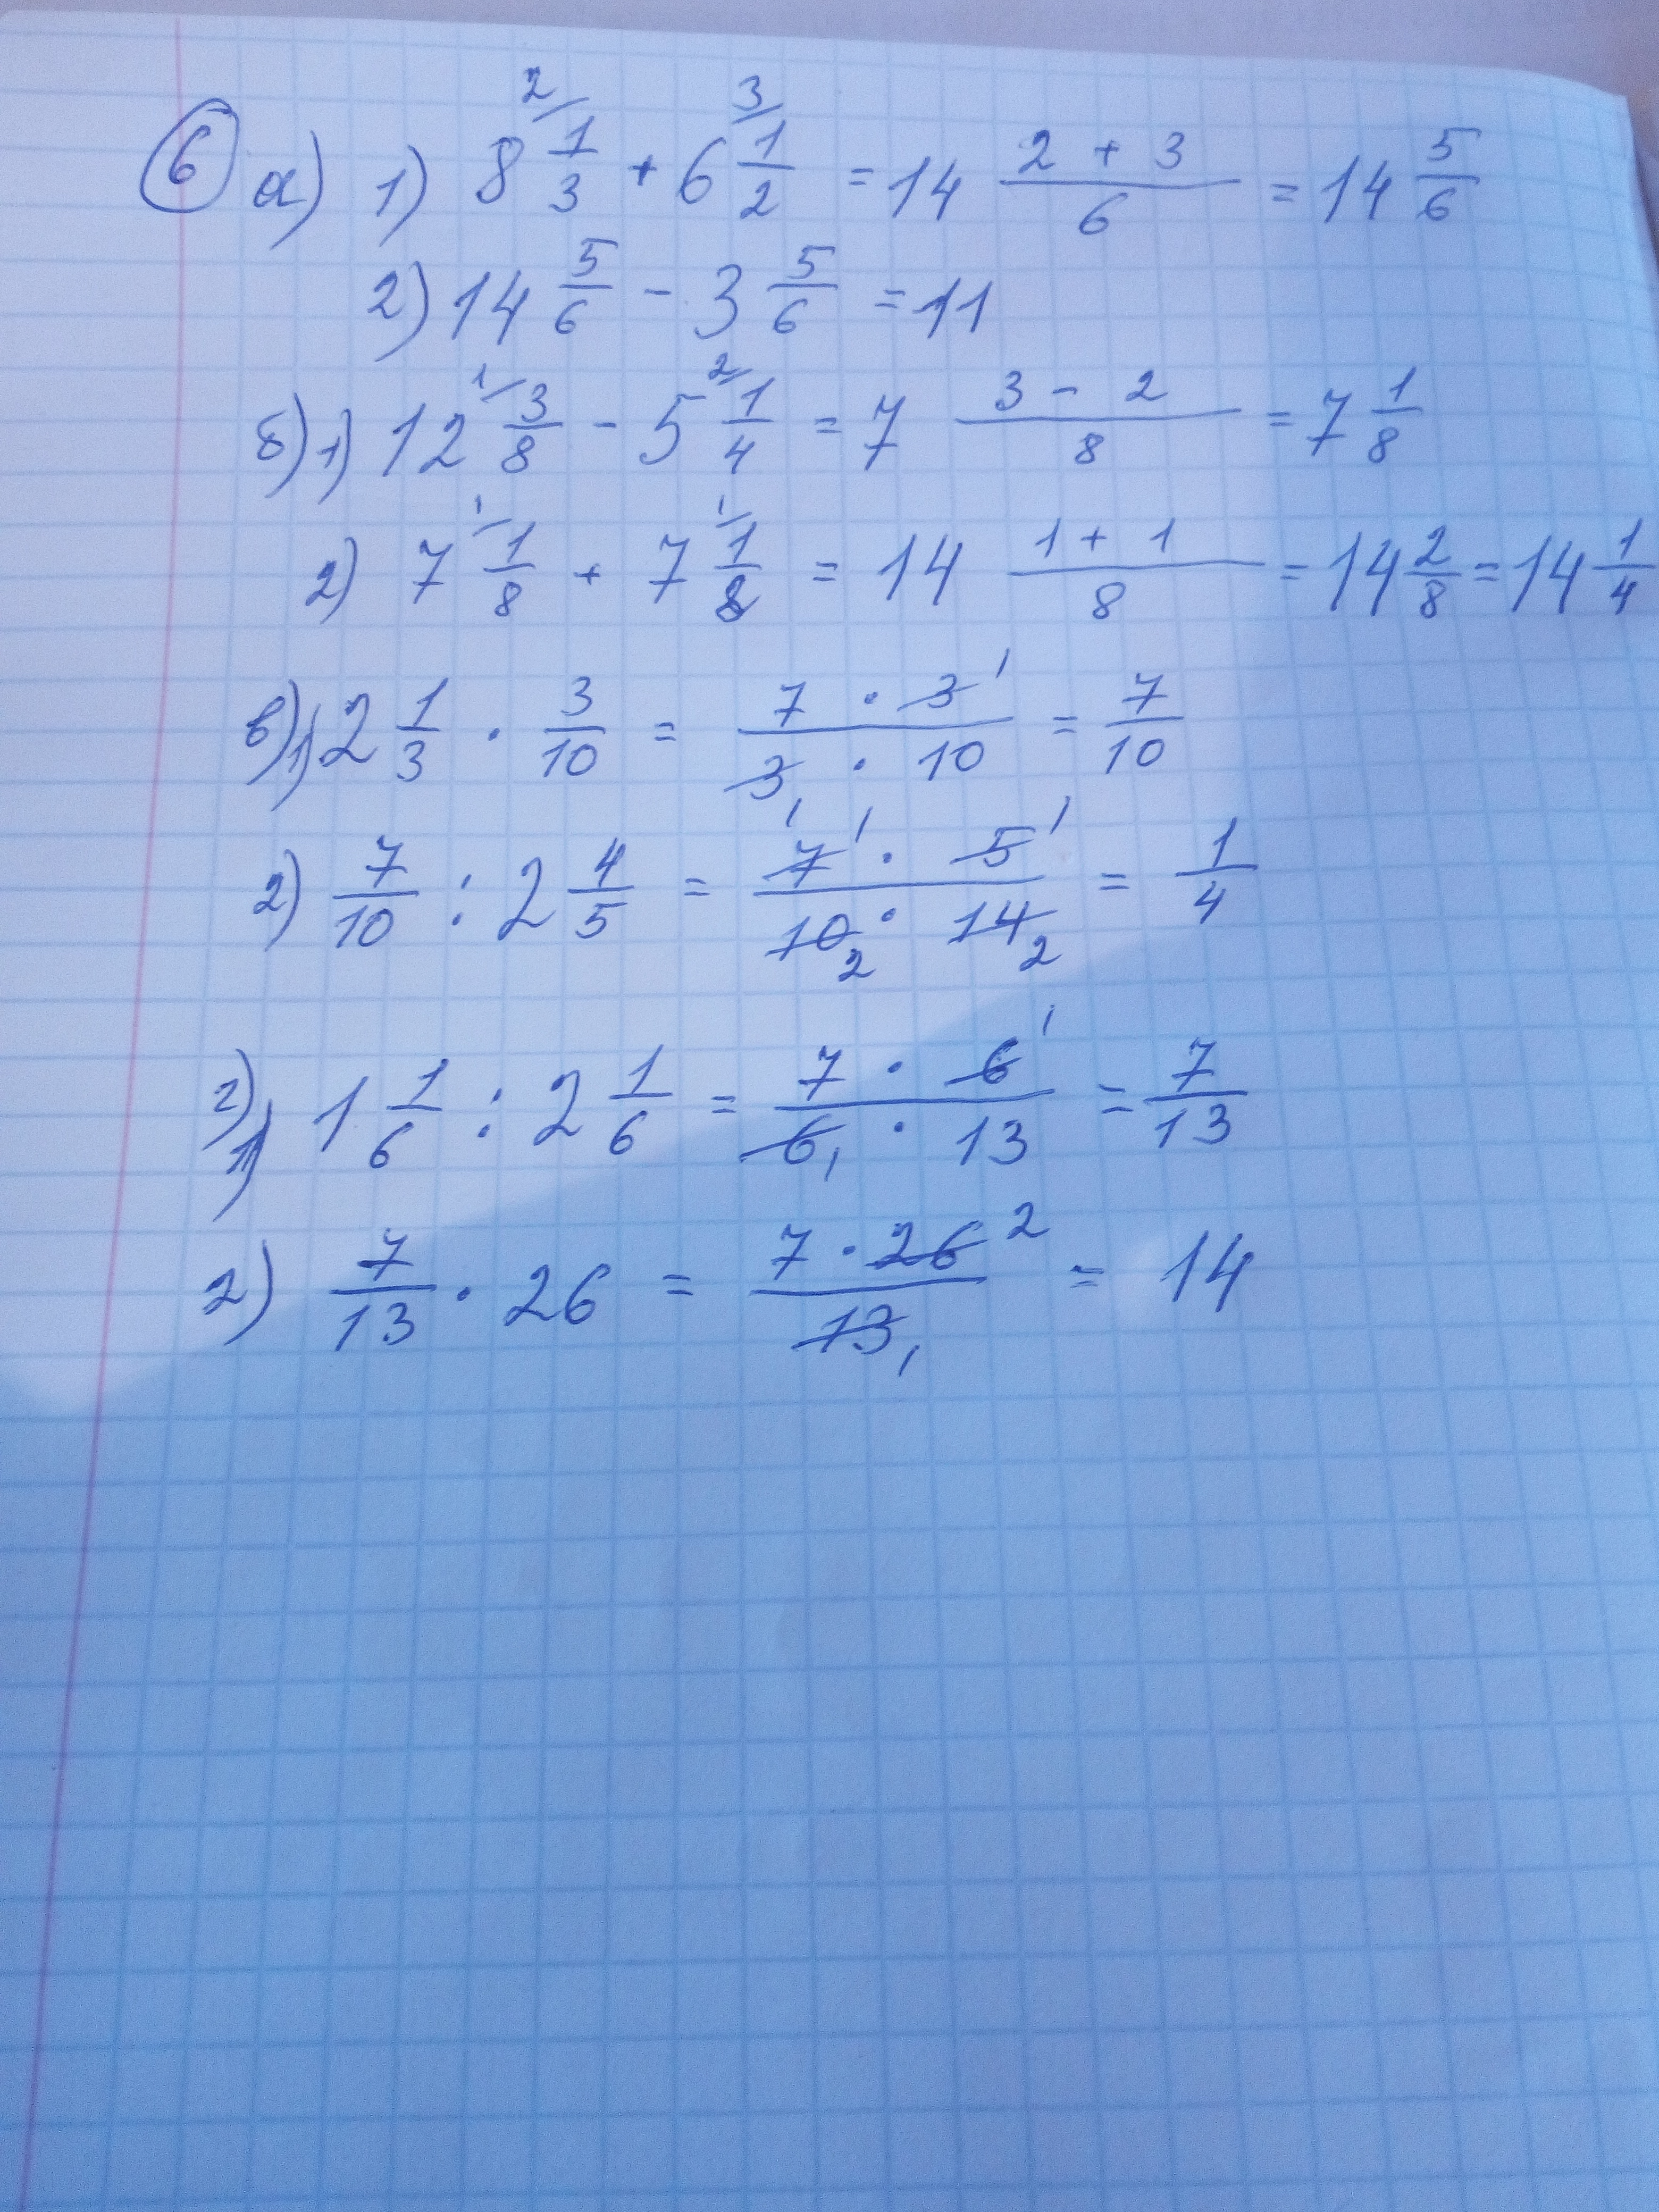 6 а) 1) 8 2/ 1/3 + 6 3/ 1/2 = 14 (2 + 3)/6 = 14 5/6
2) 14 5/6 - 3 5/6 = 11
б) 1) 12 1/ 3/8 - 5 2/ 1/4 = 7 (3 - 2)/8 = 7 1/8
2) 7 1/ 1/8 + 7 1/ 1/8 = 14 (1 + 1)/8 = 14 2/8 = 14 1/4
в) 1) 2 1/3 · 3/10 = (7 · 3 1)/(3 1 · 10) = 7/10
2) 7/10 : 2 4/5 = (7 1 · 5 1)/(10 2 · 14 2) = 1/4
г) 1) 1 1/6 : 2 1/6 = (7 · 6 1)/(6 1 · 13) = 7/13
2) 7/13 · 26 = (7 · 26 2)/(13 1) = 14